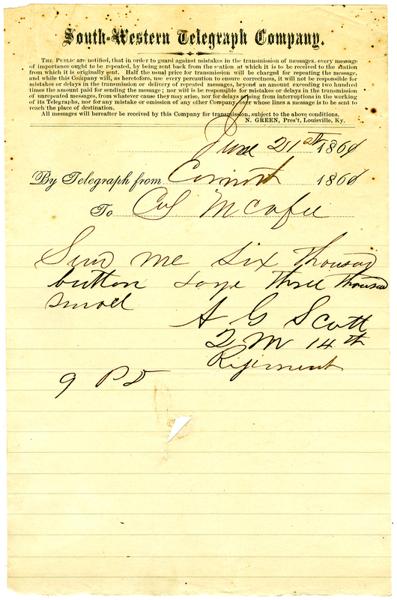 South-Western Telegraph Company.
THE PUBLIC are notified, that in order to guard against mistakes in the transmission of messages, every message
of importance ought to be repeated, by being sent back from the station at which it is to be received to the station
from which it is originally sent. Half the usual price for transmission will be charged for repeating the message,
and while this Company will, as heretofore, use every precaution to ensure correctness, it will not be responsible for
mistakes or delays in the transmission or delivery of repeated messages, beyond an amount exceeding two hundred
times the amount paid for sending the message; nor will it be responsible for mistakes or delays in the transmission
of unrepeated messages, from whatever cause they may arise, nor for delays arising from interruptions in the working
of its Telegraphs, nor for any mistake or omission of any other Company, over whose lines a message is to be sent to
reach the place of destination.
All messages will hereafter be received by this Company for transmission, subject to the above conditions.
N. GREEN, Pres't, Louisville, Ky.
June 21st 1861
By Telegraph from Corinth 1861
To Col McAfee
Send me six thousand
button large three thousand
small
A G Scott
Q M 14th
Regiment
9 P D